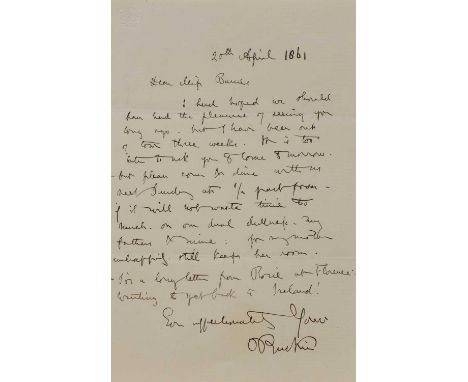 20th April 1861
Dear Miss
I had hoped we should
have had the pleasure of seeing you
long ago. but I have been out
of town three weeks. It is too
late to ask you to come tomorrow.
- but please come & dine with us
next Sunday at 1/2 past four -
if it will not waste time too
much - on our dual dullness - my
fathers & mine : for my mother
unhappily still keeps her room.
- I've a long letter from Rosie at Florence -
wanting to get back to Ireland!
Ever affectionately Yours
J Ruskin